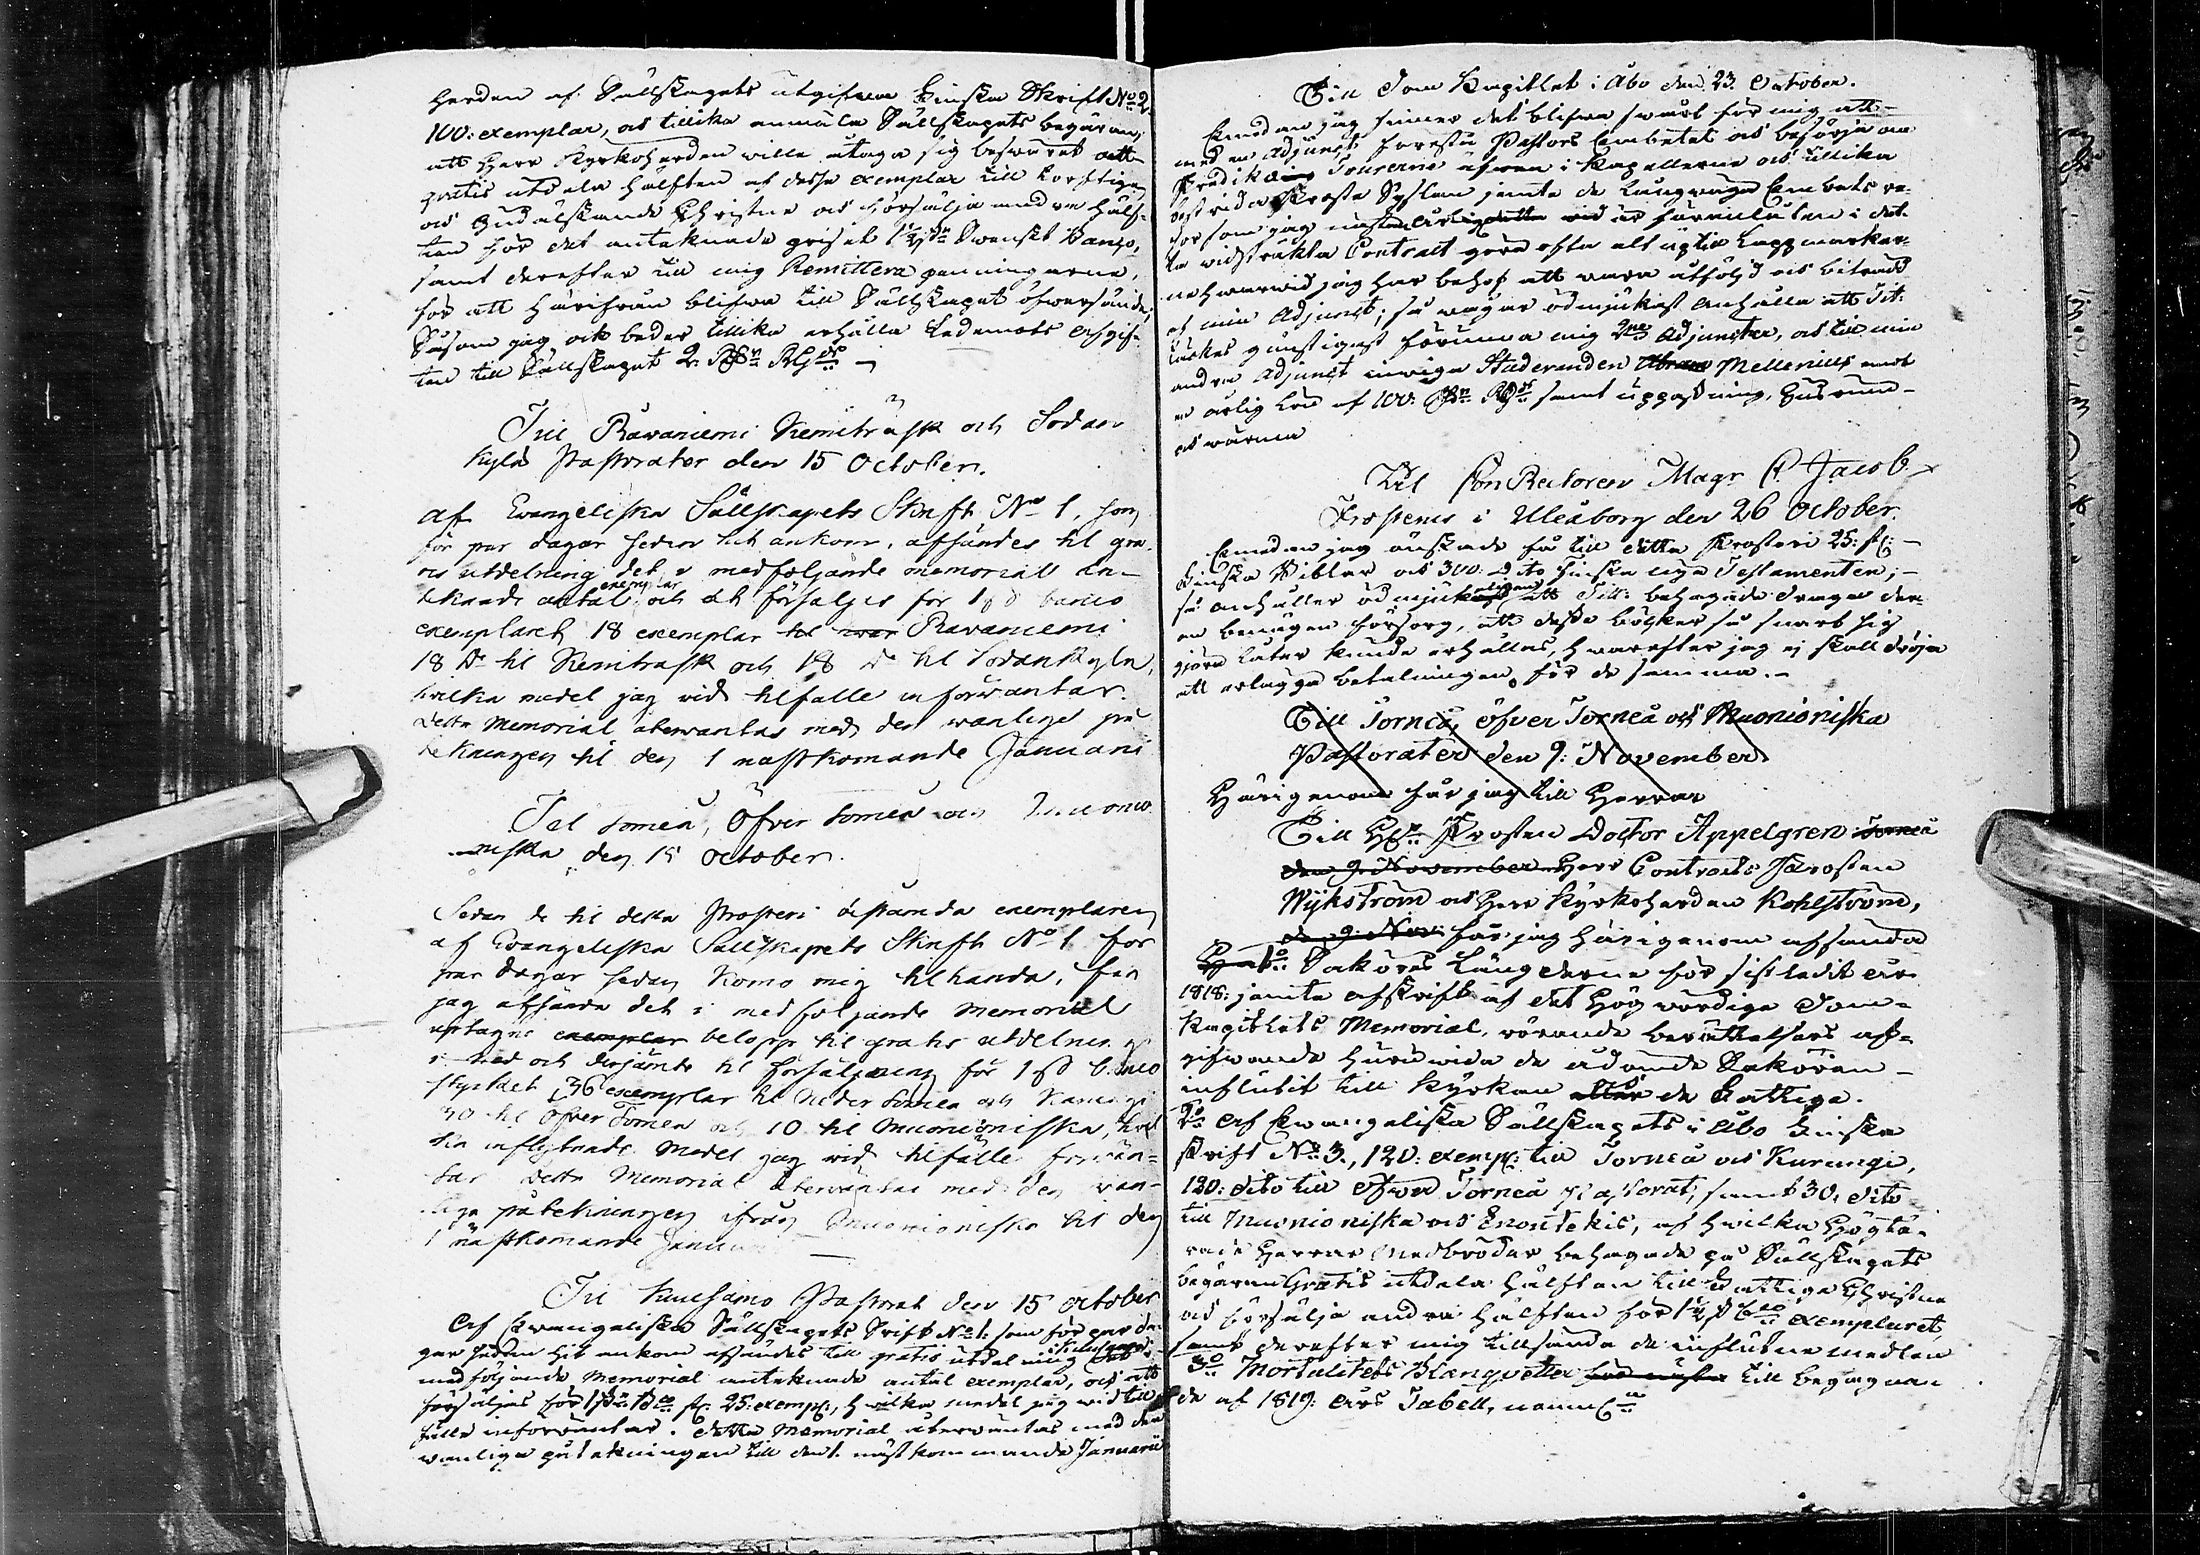 herden af Sällskapets utgifna Finska Skrift No 2
100: exemplar, och tillika anmäla Sällskapets begäran,
att Herr Kyrkoherden wille åtaga sig beswäret att
gratis utdela hälften af desse exemplar till torftige
och Gudälskande Christne och försälja andre hälf-
ten för det anteknade priset 1½ sk. Swenskt Banco,
samt derefter till mig Remittera penningarne,
för att härifrån blifwa till Sällskapet öfwersände,
Såsom jag ock beder tillika erhålla Ledamots afgif-
ten till Sällskapet 2. Rdr RGds
Till Råwaniemi Kemiträsk och Sodan
kylä Pastorater den 15 October.
af Evangeliska Sällskapets Skrift No 1, som
för par dagar sedan hit ankom, afsändes til gra-
tis utdelning det i medföljande memorial an-
teknade antal exemplar och at försäljas för 1 sk banco
exemplaret 18 exemplar til Råvaniemi
18 Do til Kemitrask och 18 Do til Sodankyla,
hvilka medel jag vid tilfälle inforwäntar.
detta Memorial återwäntas med den wanlige på
tekningen til den 1 nästkomande Januarii
Til Torneå, Öfver Torneå och Muonio
niska den 15 October.
Sedan de til detta Prosteri bestämda exemplaren
af Evangeliska Sällskapets Skrift No 1 för
par dagar sedan komo mig tilhanda, får
jag afsända det i medföljande Memorial
uptagne exemplar belopp til gratis utdelning
och derjämte til försäljning för 1 sk banco
stycket 36 exemplar til Neder Torneå och Karungi
30 til Öfver Torneå och 10 til Muonioniska,
inflytande Medel jag wid tilfälle förwän-
tar detta Memorial återväntas med den wan-
liga påtekningen ifrån Muonioniska til den
1 nästkomande Januarii
Till Kuusamo Pastorat den 15 October
Af Ewangeliska Sällskapets Skrift No 1: som för par da-
gar sedan hit ankom afsändes till gratis utdelning det i
medföljande Memorial anteknade antal exemplar, och att
försäljas för 1 sk Bco st: 25: exempl:, hwilka medel jag wid till-
fälle inforwäntar. detta Memorial återwäntas med den
wanliga påtekningen till den 1. nästkommande Januarii
Till Dom Kapitlet i Åbo den 23. October.
Emedan jag finner det blifwa swårt för mig att
med en Adjunct förestå Pastors Embetet och besörja om
Predikning Tourerne äfwen i Kapellerne och tillika
bestrida Prosta Syslan jemte de långwäga Embets re-
sor som jag nästan Årligen är förenlåten i det-
ta widsträkta Contract göra ofta alt up til Lappmarker-
ne hwarwid jag har behof att wara åtföljd och biträdd
af min Adjunct; så wågar ödmjukast anhålla att Tit:
täckes gunstigast förunna mig 2ne Adjuncter, och till min
andre Adjunct inwiga Studeranden Mellenius emot
en årlig Lön af 100: Rdr RGds samt uppassning, Husrum
och wärme
Till Con Rectoren Magr C. Jacob
Frosterus i Uleåborg den 26 October.
Emedan jag önskade få till detta Prosteri 25: st:
Finska Biblar och 300. Dito Finska nya Testamenten;
så anhåller ödmjukast att Titt: behagade draga der-
om benägen försorg, att desse böcker så snart sig
göra låter kunde erhållas, hwarefter jag ej skall dröja
att erlägga betalningen för de samma.
Till Torneå, öfver Torneå och Muonioniska
Pastorater den 9: November
Härigenom får jag till Herrar
Till HErr Prosten Doctor Appelgren Torneå
den 9. November Herr Contracts Prosten
Wijkström och Herr Kyrkoherden Kohlström,
den 9. Nov: får jag härigenom afsända
1o Saköres Längderne för sistledit år
1818: jemte afskrift af det Högwördige Dom-
Kapitlets Memorial, rörande berättelsers af-
gifwande huruwida de ådömde Saköran
influtit till Kyrkan eller de Fattiga.
2o Af Ewangeliska Sällskapets i Åbo Finska
Skrift No 3., 120. exemp: till Torneå och Karungi,
120: dito till Öfwer Torneå Pastorat, samt 30. dito
till Muonioniska och Enontekis, af hwilka Högtä-
rade Herrar Medbröder behagade på Sällskapets
begäran Gratis utdela hälften till Fattige Christne
och försälja andra hälften för 1½ sk Bco exemplaret,
samt derefter mig tillsända de influtne medlen
3o Mortalitets Blanqvetter för nästa till begagnan-
de af 1819: års Tabell,